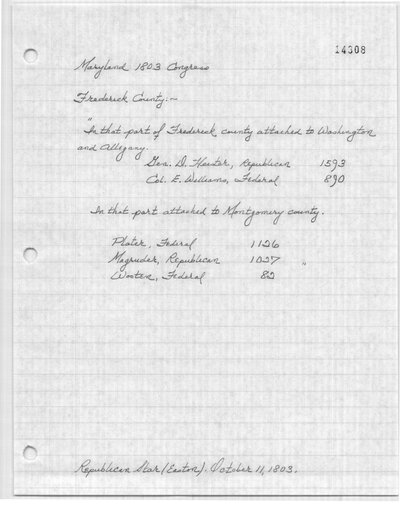 14308
Maryland 1803 Congress
Frederick County:—
"In that part of Frederick county attached to Washington
and Allegany.
Gen. D. Heister, Republican 1593
Col. E. Williams, Federal 890
In that part attached to Montgomery county.
Plater, Federal 1126
Magruder, Republican 1027 "
Wooten, Federal 82
Republican Star (Easton). October 11, 1803.